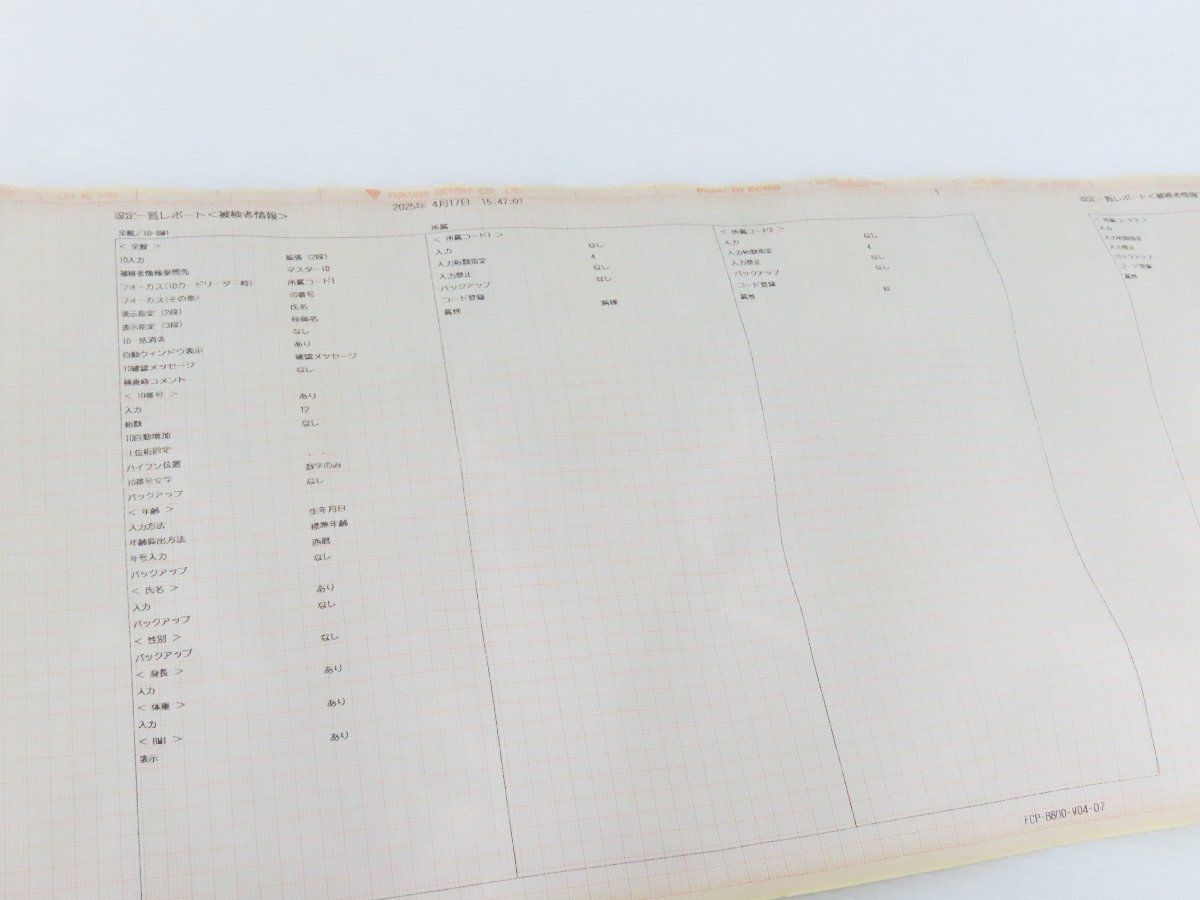 FUKUDA DENSHI CO., LTD.
設定一覧レポート＜被検者情報＞
2025年 4月17日 15:47:01
全般/ID-BMI
＜ 全般 ＞
ID入力 拡張 (2段)
被検者情報参照先 マスターID
フォーカス(IDカードリーダー時) 所属コード1
フォーカス(その他) ID番号
表示指定 (2段) 氏名
表示指定 (3段) 技師名
ID一括消去 なし
自動ウィンドウ表示 あり
ID確認メッセージ 確認メッセージ
検査時コメント なし
＜ ID番号 ＞
入力 あり
桁数 12
ID自動増加 なし
上位桁固定
ハイフン位置 - -
ID番号文字 数字のみ
バックアップ なし
＜ 年齢 ＞
入力方法 生年月日
年齢算出方法 標準年齢
年号入力 西暦
バックアップ なし
＜ 氏名 ＞
入力 あり
バックアップ なし
＜ 性別 ＞
バックアップ なし
＜ 身長 ＞
入力 あり
＜ 体重 ＞
入力 あり
＜ BMI ＞
表示 あり
所属
＜ 所属コード1 ＞
入力 なし
入力桁数指定 4
入力禁止 なし
バックアップ なし
コード登録
属性 病棟
＜ 所属コード2 ＞
入力 なし
入力桁数指定 4
入力禁止 なし
バックアップ なし
コード登録
属性 科
設定一覧レポート＜被検者情報
＜ 所属コード3 ＞
入力
入力桁数指定
入力禁止
バックアップ
コード登録
属性
FCP-8800-V04-07